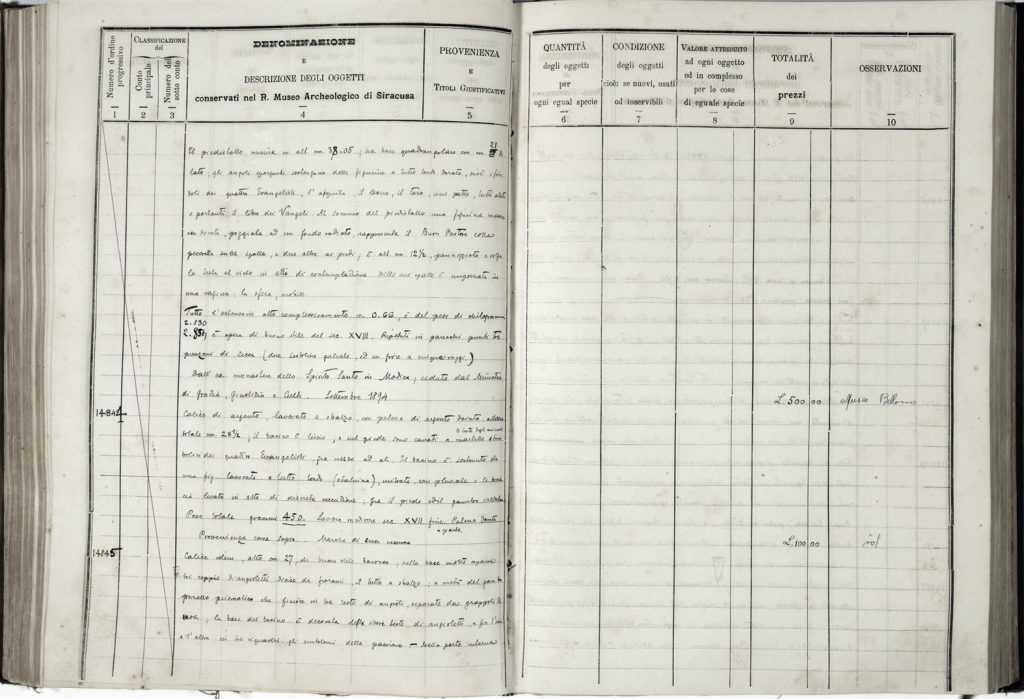 Numero d'ordine progressivo
1
CLASSIFICAZIONE
del
Conto principale
2
Numero del sotto conto
3
DENOMINAZIONE
E
DESCRIZIONE DEGLI OGGETTI
conservati nel R. Museo Archeologico di Siracusa
4
PROVENIENZA
E
TITOLI GIUSTIFICATIVI
5
QUANTITÀ
degli oggetti
per
ogni egual specie
6
CONDIZIONE
degli oggetti
cioè: se nuovi, usati
od inservibili
7
VALORE ATTRIBUITO
ad ogni oggetto
ed in complesso
per le cose
di eguale specie
8
TOTALITÀ
dei
prezzi
9
OSSERVAZIONI
10
Il piedistallo misura in alt. cm 38.05; ha base quadrangolare con cm. 21 di
lato; gli angoli sporgenti sostengono delle figurine a tutto tondo dorate, cioè i sim
boli dei quattro Evangelisti, l'aquila, il leone, il toro, un putto, tutti alati
e portanti il libro dei Vangeli. Al sommo del piedistallo una figurina
con dorata, poggiata ad un fondo radiato, rappresenta il Buon Pastore colla
pecorella sulle spalle, e due altre ai piedi; è alt. cm. 12½, panneggiato e volge
la testa al cielo in atto di contemplazione. Delle sue spalle è imperniata in
una la sfera, mobile
Tutto l'ostensorio alto complessivamente m. 0.66, è del peso di chilogram
2.130
è opera di buono stile del sec. XVIII. Ripetuti in parecchi punti tre
punzoni di zecca (due ed un fiore a cinque raggi)
Dall'ex monastero dello Spirito Santo in Modica; ceduto dal Ministero
di Grazia, Giustizia e Culti. Settembre 1894
L. 500.00 Museo Bellomo
14844
Calice di argento, lavorato a sbalzo, con patena di argento dorato altezza
totale cm. 28½; il bacino è liscio, e sul piede sono cavati a martello i sim
bolici dei quattro Evangelisti, fra mezzo ad ali. Il bacino è sostenuto da
una fig. lavorata a tutto tondo (statuina), mitrata con pluviale e le brac
cia levate in alto di discreta esecuzione, fra il piede ed il gambo
Peso totale grammi 450. Lavoro mediocre sec. XVII fine. Patena dorata
a parte.
Provenienza come sopra. Marche di zecca nessuna
L. 100.00 id
14845
Calice idem, alto cm 27, di buono stile barocco; nella base molto espansa
tre coppie di angioletti divise da fiorami, il tutto a sbalzo; a metà del gam
prismatico che finisce in tre teste di angioli, separate da grappoli di
uva; la base del bacino è decorata delle stesse teste di angioletti, e fra l'una
e l'altra in tre riquadri gli emblemi della passione — Nella parte interna